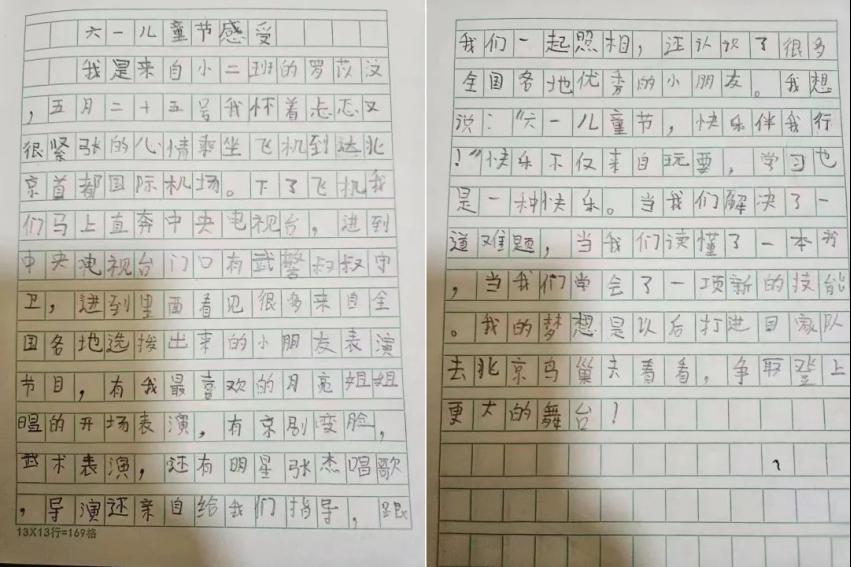 六一儿童节感受
我是来自小二班的罗苡汶
，五月二十五号我怀着忐忑又
很紧张的心情乘坐飞机到达北
京首都国际机场。下了飞机我
们马上直奔中央电视台，进到
中央电视台门口有武警叔叔守
卫，进到里面看见很多来自全
国各地选拔出来的小朋友表演
节目，有我最喜欢的月亮姐姐
唱的开场表演，有京剧变脸，
武术表演，还有明星张杰唱歌
，导演还亲自给我们指导，跟
13X13行=169格
我们一起照相，还认识了很多
全国各地优秀的小朋友。我想
说：“六一儿童节，快乐伴我行
！”快乐不仅来自玩耍，学习也
是一种快乐。当我们解决了一
道难题，当我们读懂了一本书
，当我们学会了一项新的技能
。我的梦想是以后打进国家队
去北京鸟巢去看看，争取登上
更大的舞台！